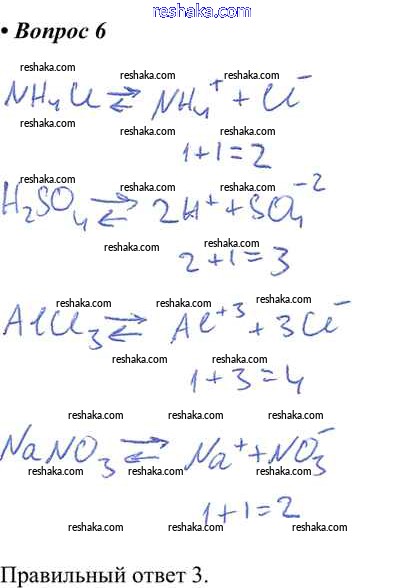 reshaka.com
• Вопрос 6
reshaka.com
reshaka.com reshaka.com
NH₄Cl ⇄ NH₄⁺ + Cl⁻
reshaka.com
reshaka.com reshaka.com
1+1=2
reshaka.com reshaka.com
H₂SO₄ ⇄ 2H⁺ + SO₄⁻²
reshaka.com reshaka.com
2+1=3
reshaka.com reshaka.com reshaka.com
AlCl₃ ⇄ Al⁺³ + 3Cl⁻
reshaka.com reshaka.com
1+3=4
reshaka.com reshaka.com reshaka.com
NaNO₃ ⇄ Na⁺ + NO₃⁻
reshaka.com reshaka.com reshaka.com
1+1=2
reshaka.com reshaka.com reshaka.com
Правильный ответ 3.